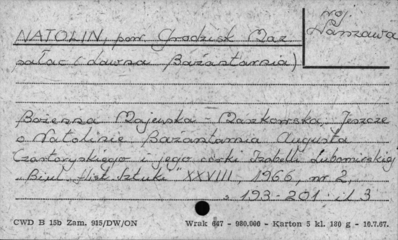 woj.
Warszawa
NATOLIN, pow. Grodzisk Maz
pałac (dawna Bażantarnia)
Bożenna Majewska-Maszkowska, Jeszcze
o Natolinie Bażantarnia Augusta
Czartoryskiego i jego córki Izabelli Lubomirskiej
"Biul. Hist. Sztuki" XXVIII - 1966, nr 2,
s. 193-201. il 3
CWD B 15b Zam. 915/DW/ON Wrak 647 - 980,000 - Karton 5 kl. 180 g - 10.7.67.